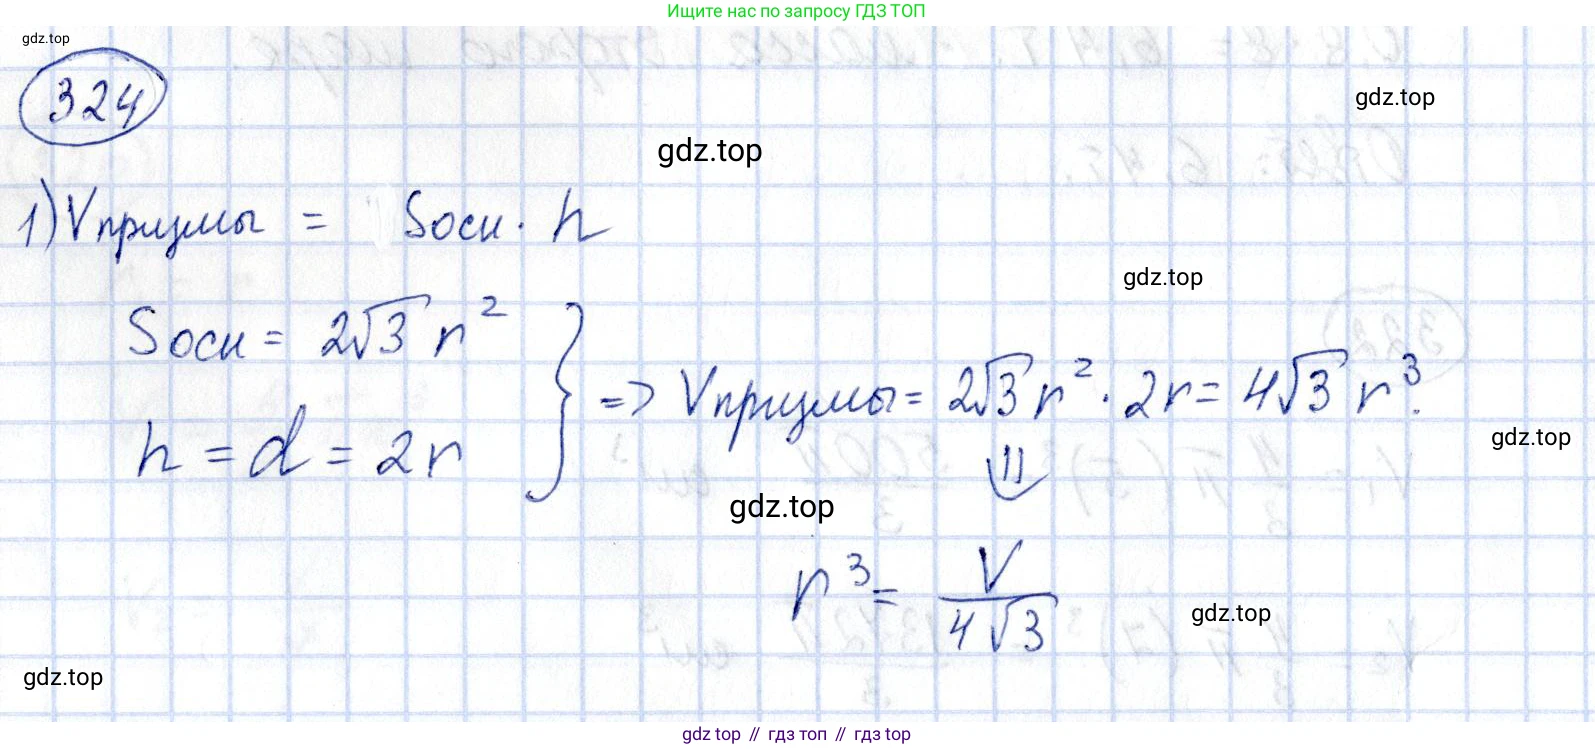 Ищите нас по запросу ГДЗ ТОП
gdz.top
324
gdz.top
gdz.top
1) Vпризмы = Sосн · h
gdz.top
Sосн = 2√3 r²
h = d = 2r
} => Vпризмы = 2√3 r² · 2r = 4√3 r³.
gdz.top
gdz.top
⇓
r³ = V / 4√3
gdz.top
gdz.top
gdz top // гдз топ // гдз top